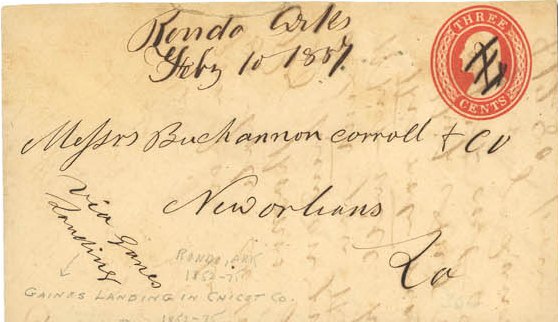 Rondo Arks
Feby 10 1857
THREE
CENTS
Messrs Buchannon Corroll & Co
New orlians
La
Via Ganes
Landing
RONDO, ARK
1852-75
GAINES LANDING IN CHICOT CO.
1852-75